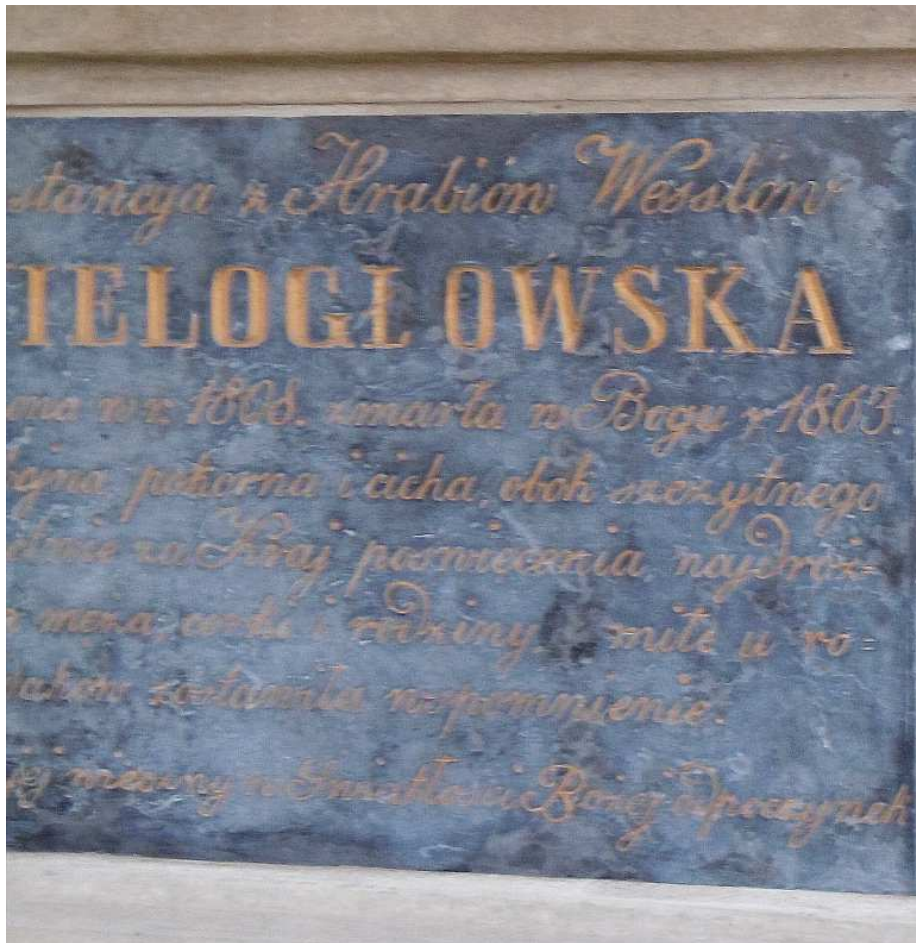 stancya z Hrabiów Wesslów
IELOGŁOWSKA
w r. 1808. zmarła w Bogu r 1863.
pokorna i cicha, obok szczytnego
za Kraj poświęcenia, najdroż=
męża, córki i rodziny miłe u ro=
zostawiła wspomnienie.
wieczny w Światłości Bożej odpoczynek